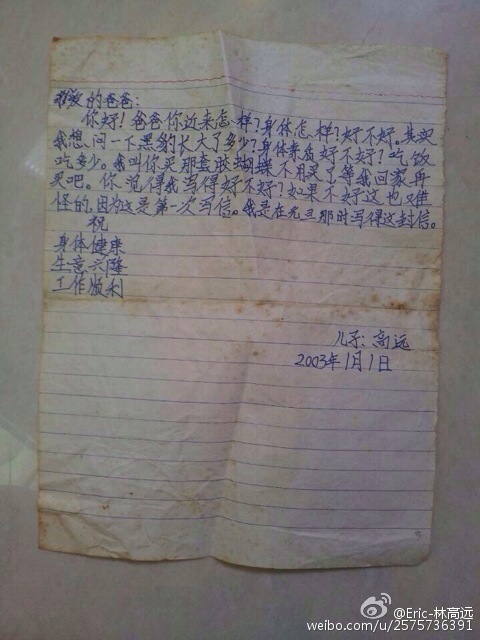 亲爱的爸爸:
你好!爸爸你近来怎样?身体怎样?好不好。其实
我想问一下黑豹长大了多少?身体素质好不好?吃饭
吃多少。我叫你买那套胶蝴蝶不用买了等我回家再
买吧。你觉得我写得好不好?如果不好这也难
怪的,因为这是第一次写信。我是在元旦那时写得这封信。
祝
身体健康
生意兴隆
工作顺利
儿子:高远
2003年1月1日
@Eric-林高远
weibo.com/u/2575736391